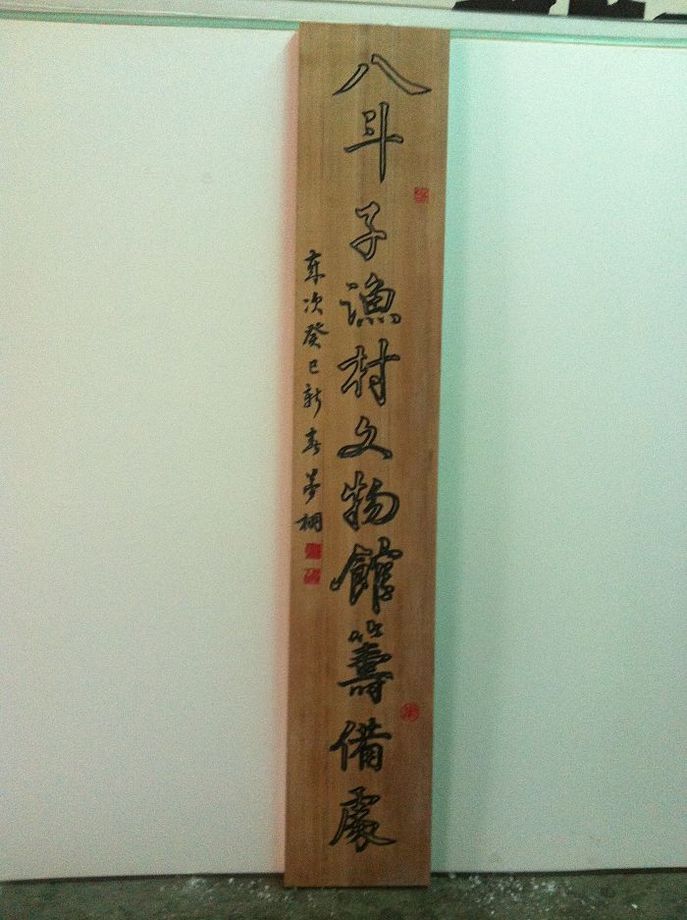 八斗子漁村文物館籌備處
歲次癸巳新春